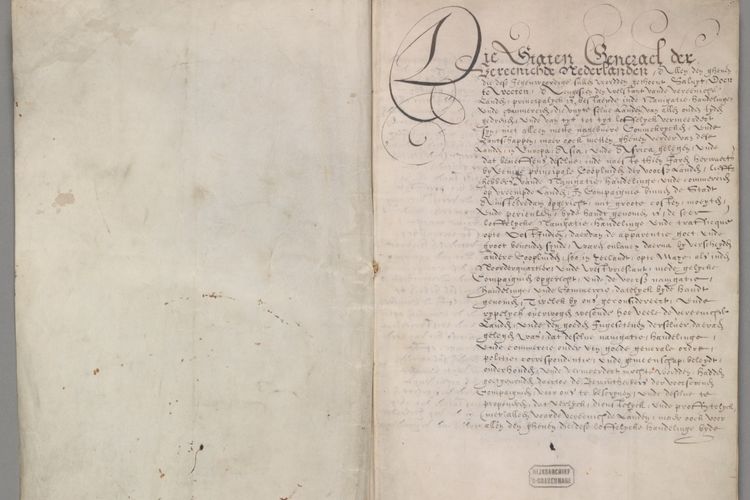 Die Staten Generael der
Vereenichde Nederlanden, Allen den ghenen
die dese Jegenwoordige sullen werdden gethoont, Saluyt. Doen
te Weeten, Alsoe den welstant van de vereenichde
Landen, principalyck is bestaende inde Navigatie handelinge
Ende Commercie, die vuyte selve Landen van allen ouden tyden
gedreven, Ende van tyt tot tyt loffelyck vermeerdert
syn, niet alleen mette naebuere Connickrycken, Ende
Lantschappen, maer oock metten ghenen verder van dese
Landen, in Europa, Asia, Ende Africa gelegen, Ende
dat beneffens dselve, inde naeste thien Jaren herwaerts
by eenige principale Coopluyden der voorsz Landen, Lieff
hebbers vande Navigatie, handelinge, Ende commercien
op vreemde Landen, In Compaignie binnen de Stadt
Amstelredam opgericht, met groote costen, moeyten,
Ende periculen, byde handt genomen is, de seer
loffelycke Navigatie, handelinge Ende trafficque
opte Oost Indien, daervan de apparentie goet Ende
groot bevonden synde, Waren onlancx daerna by verscheyden
andere Coopluyden, soo in Zeelandt, opte Maze, als int
Noorderquartier, Ende Westvrieslant, mede gelycke
Compaignien opgericht, Ende de voorsz navigatie,
handelinge, Ende Commercie, datelyck byde handt
genomen, Twelck by ons geconsidereert, Ende
rypelyck overwogen wesende hoe veele de vereenichde
Landen, Ende den goeden Ingesetenen derselver daeran
gelegen was, dat deselve navigatie, handelinge,
Ende commercie onder een goede generale ordre,
politie, correspondentie, Ende gemeenschap, beleydt,
onderhouden, Ende vermeerdert mocht werdden, hadden
goetgevonden daertoe de Bewinthebbers der voorschreven
Compaignien, voor ons te beschryven, Ende deselve te
proponeren, dat eerlyck, dienstelyck, Ende proffytelyck
niet alleen voorde vereenichde Landen, maer oock voor
allen den ghenen, die dese loffelycke handelinge byde
RIJKSARCHIEF
'S-GRAVENHAGE